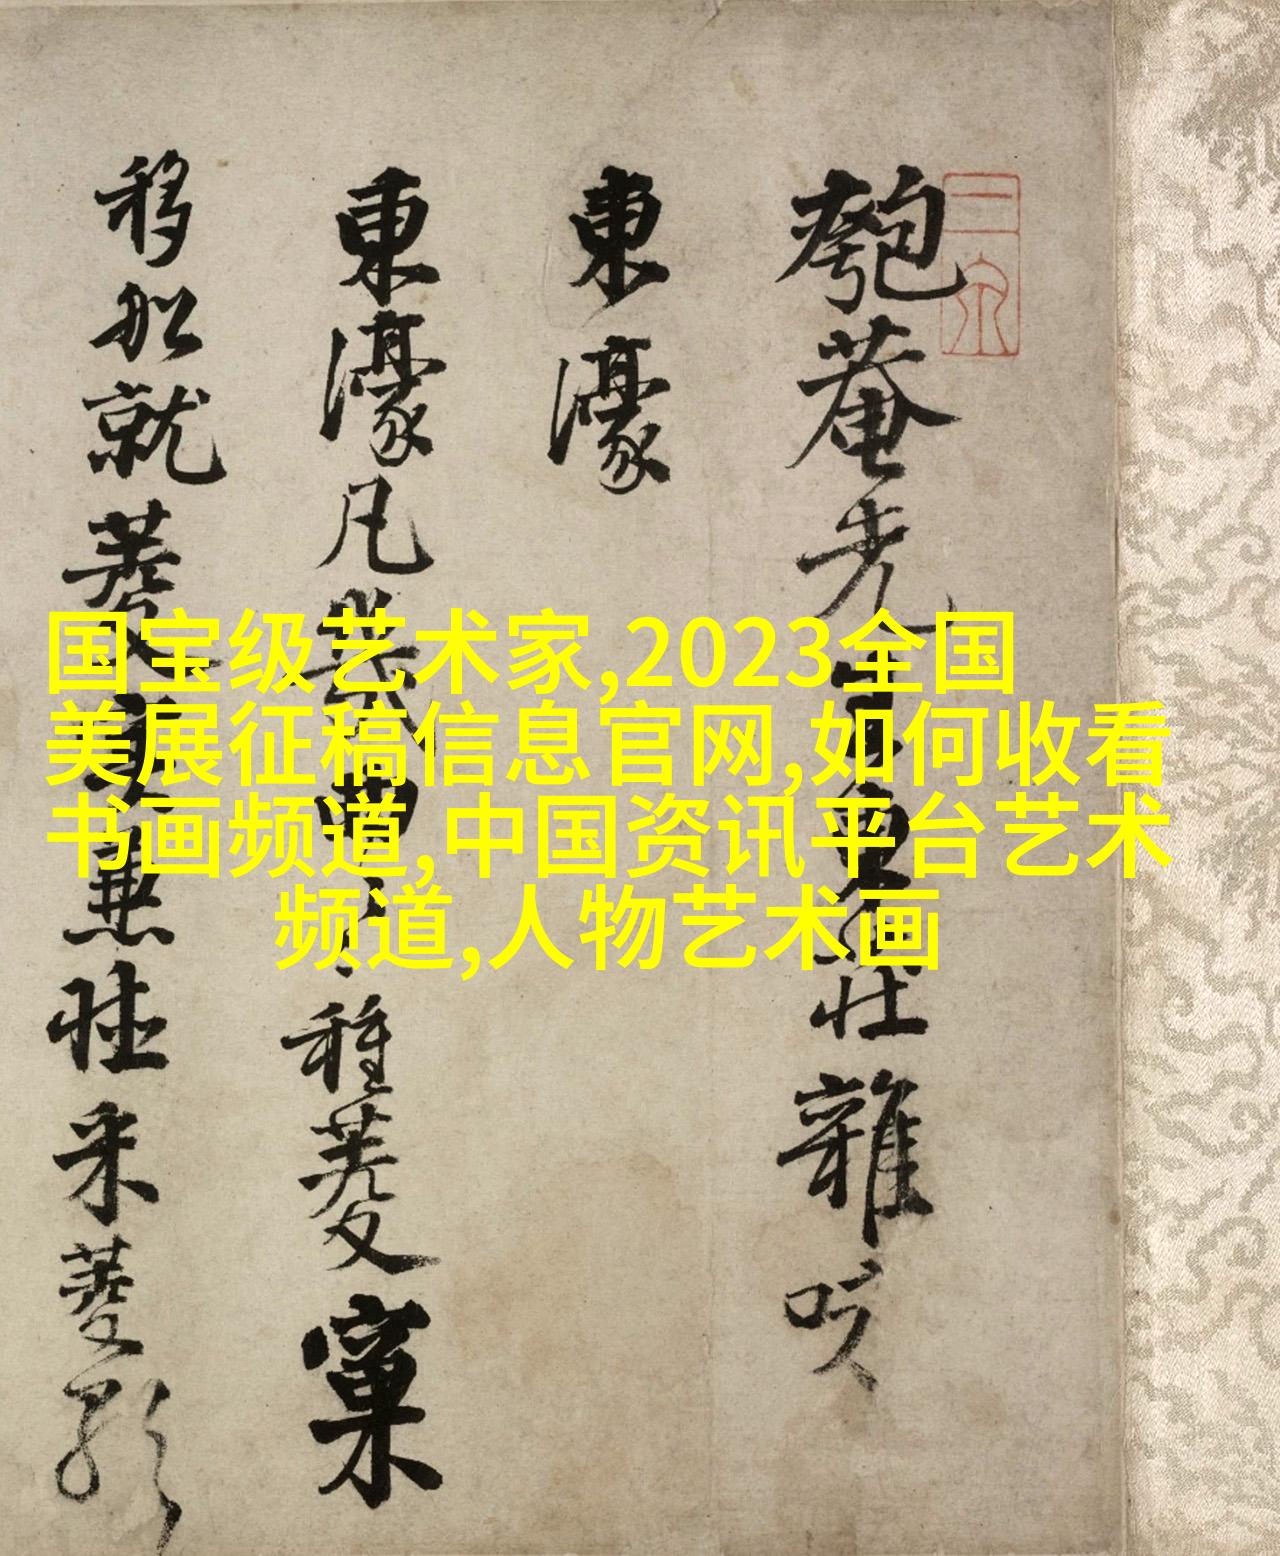 匏菴先生東莊雜咏
東濠
東濠凡幾曲種菱窠
移船就菱采菱
国宝级艺术家,2023全国
美展征稿信息官网,如何收看
书画频道,中国资讯平台艺术
频道,人物艺术画